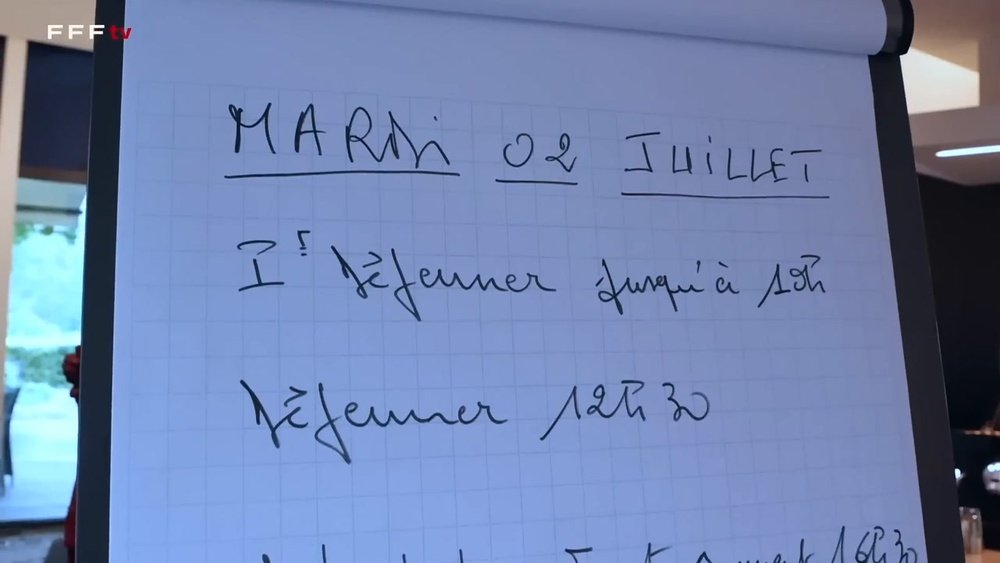 FFF tv
MARDi 02 JUiLLET
Ir Déjeuner jusqu'à 10h
Déjeuner 12h30
16h30